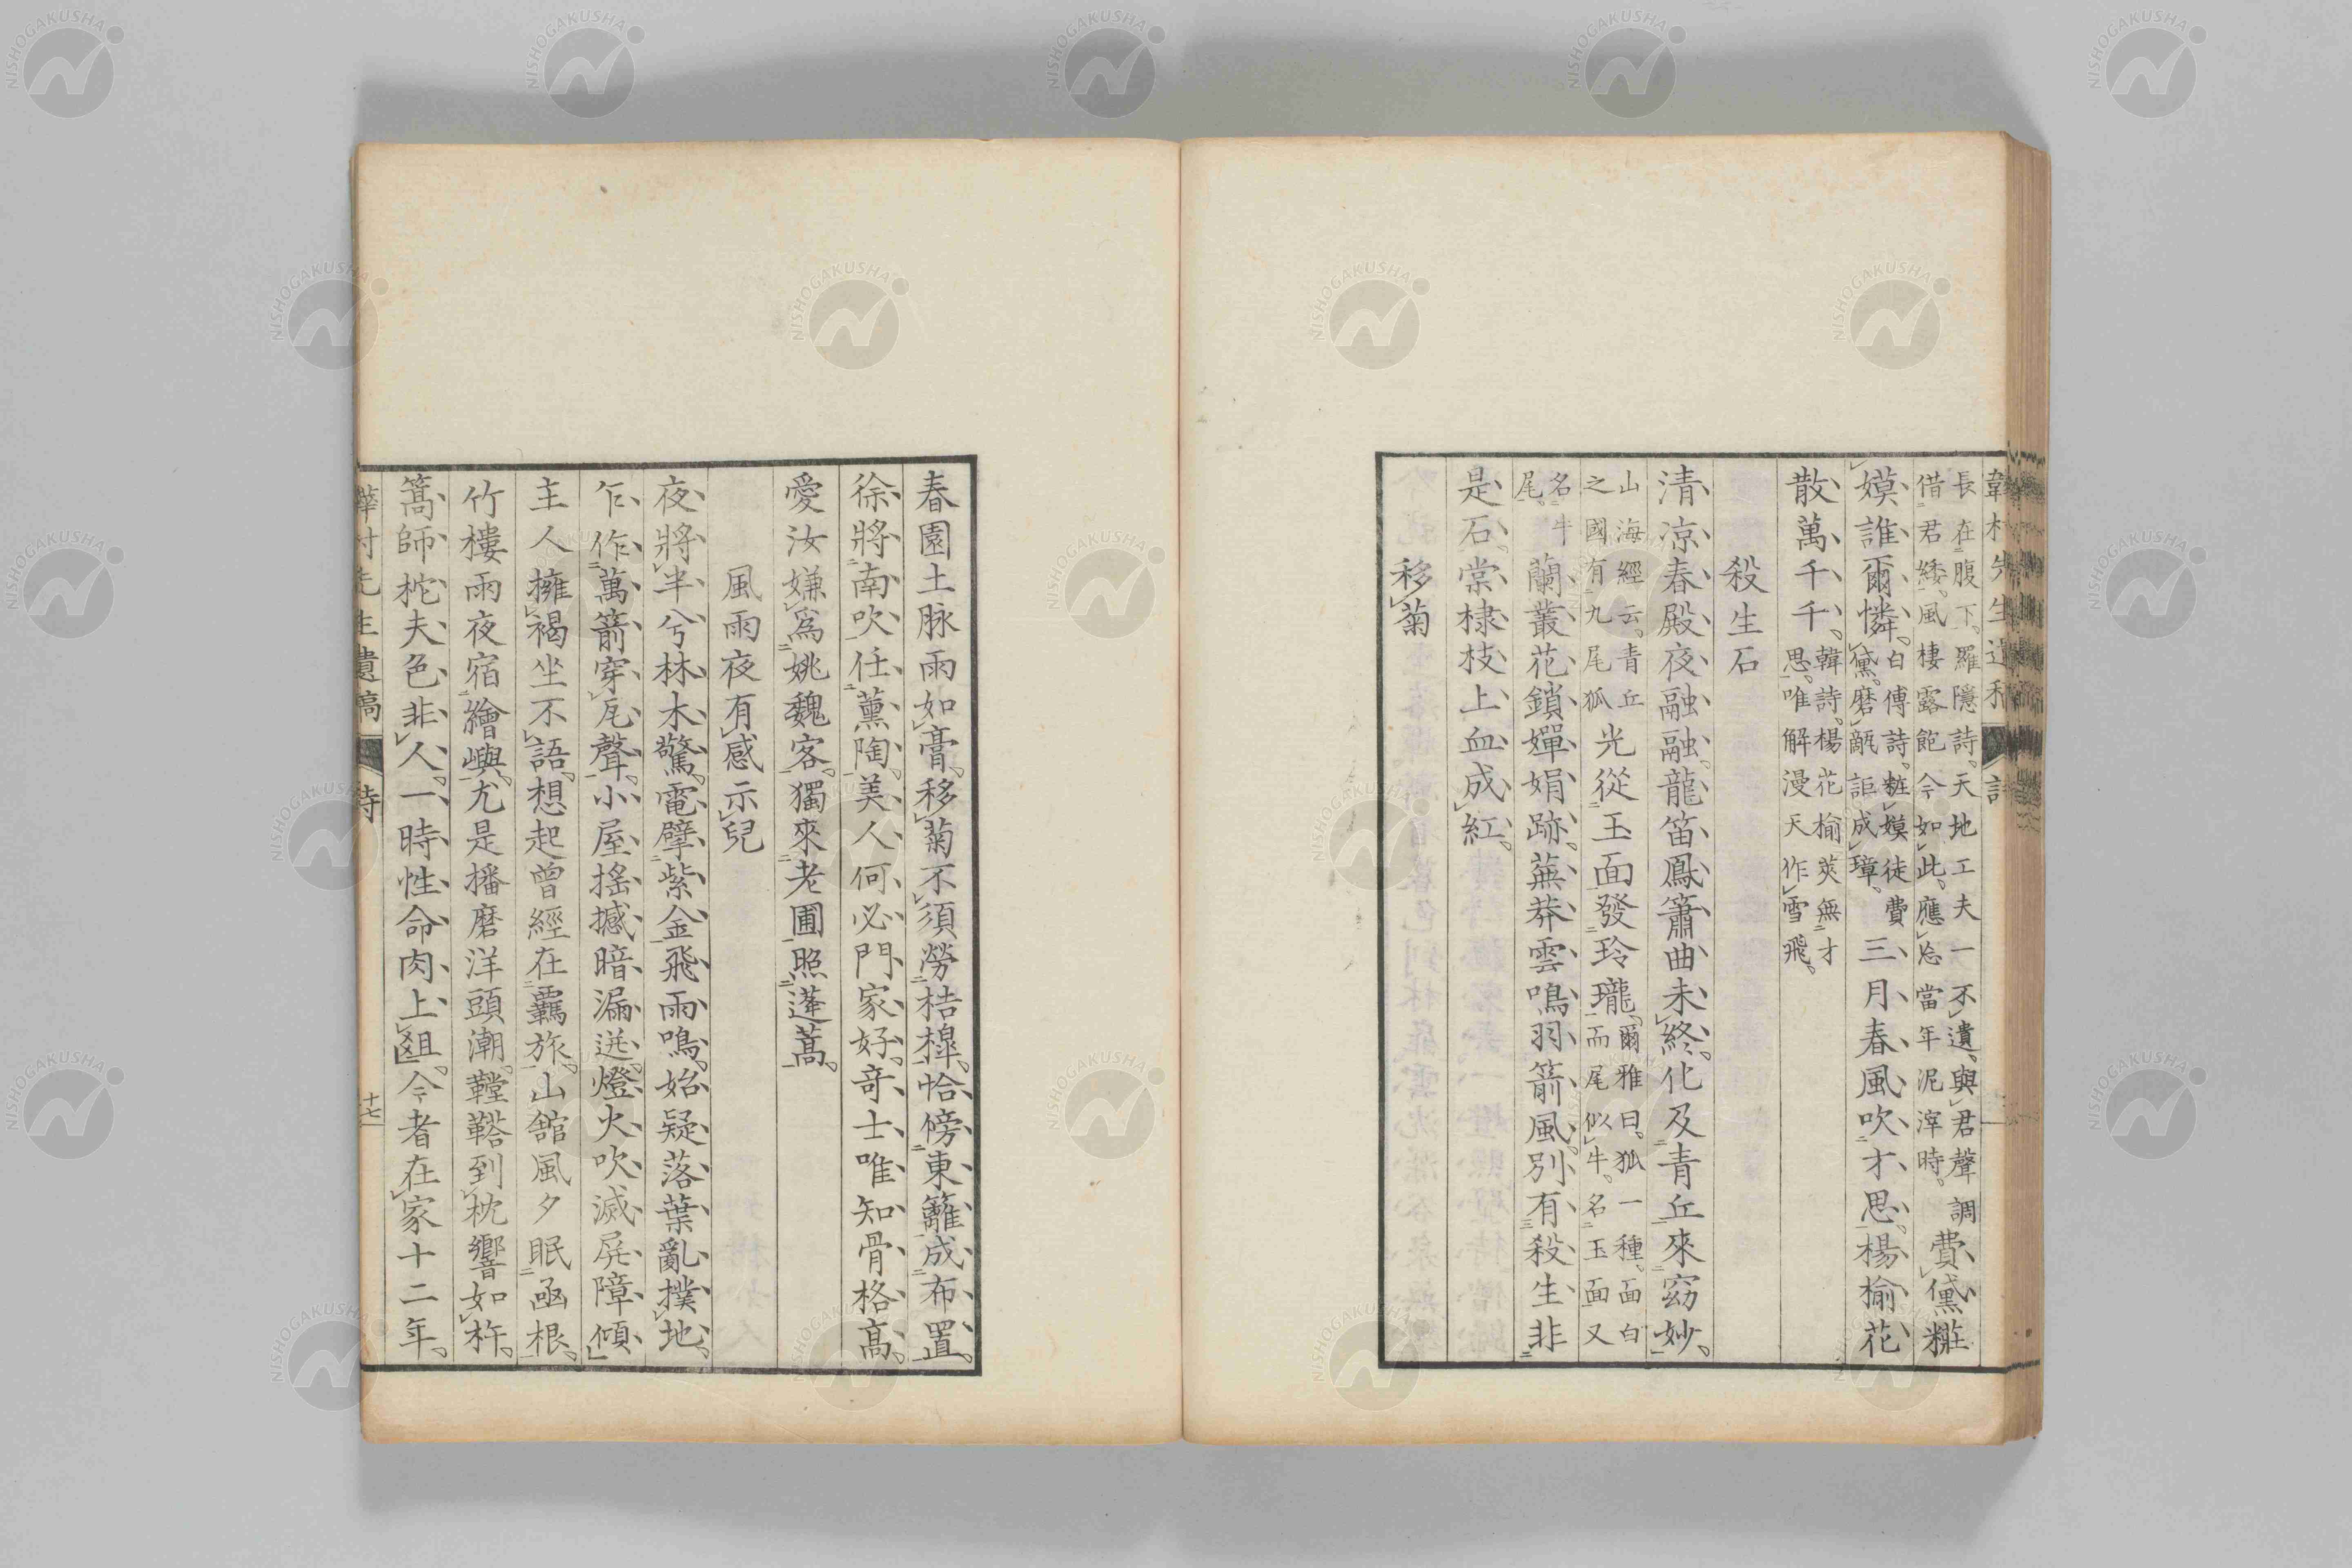 長在腹下。羅隱詩。天地工夫一不遺。與君聲調
借君緌。風棲露飽今如此。應忘當年泥滓時。費黛粧
嫫誰爾憐。白傅詩。粧嫫徒費
黛。磨甋詎成璋。三月春風吹才思。楊榆花
散萬千千。韓詩。楊花榆莢無才
思。唯解漫天作雪飛。
殺生石
清凉春殿夜融融。龍笛鳳簫曲未終。化及青丘來窈妙。
山海經云。青丘
之國有九尾狐光從玉面發玲瓏。爾雅曰。狐一種。面白
而尾似牛。名玉面又
名牛
尾。蘭叢花鎖嬋娟跡。蕪莽雲鳴羽箭風。別有殺生非
是石。棠棣枝上血成紅。
移菊
春園土脉雨如膏。移菊不須勞桔槹。恰傍東籬成布置。
徐將南吹任薰陶。美人何必門家好。奇士唯知骨格高。
愛汝嫌爲姚魏客。獨來老圃照蓬蒿。
風雨夜有感示兒
夜將半兮林木驚。電擘紫金飛雨鳴。始疑落葉亂撲地。
乍作萬箭穿瓦聲。小屋搖撼暗漏迸。燈火吹滅屏障傾。
主人擁褐坐不語。想起曾經在羈旅。山舘風夕眠凾根。
竹樓雨夜宿繪嶼。尤是播磨洋頭潮。鞺鞳到枕響如杵。
篙師柁夫色非人。一時性命肉上爼。今者在家十二年。
韡村先生遺稿 詩 十七